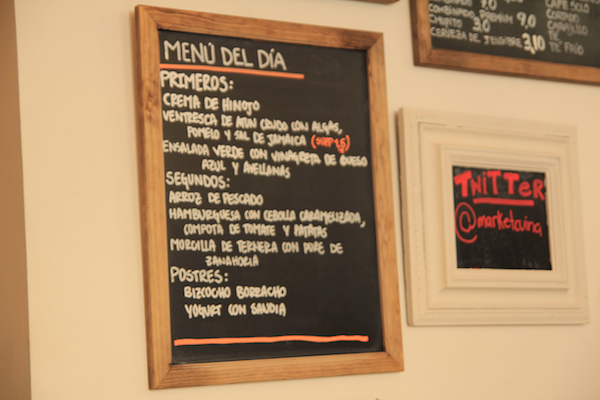 MENÚ DEL DÍA
PRIMEROS:
CREMA DE HINOJO
VENTRESCA DE ATUN CRUDO CON ALGAS,
POMELO Y SAL DE JAMAICA (SUPP 1,5)
ENSALADA VERDE CON VINAGRETA DE QUESO
AZUL Y AVELLANAS
SEGUNDOS:
ARROZ DE PESCADO
HAMBURGUESA CON CEBOLLA CARAMELIZADA,
COMPOTA DE TOMATE Y PATATAS
MORCILLA DE TERNERA CON PURE DE
ZANAHORIA
POSTRES:
BIZCOCHO BORRACHO
YOGURT CON SANDIA
COMBINADO PREMIUM 9,0
CHUPITO 3,0
CERVEZA DE JENGIBRE 3,10
CAFE SOLO
CORTADO
CARAJILLO
TE
TE FRÍO
TWITTER
@marketcuina